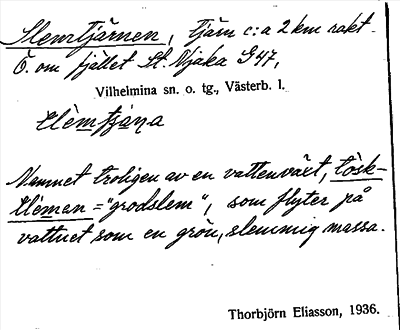 Slemtjärnen, tjärn c:a 2 km rakt
Ö. om fjället St. Njaka G47,
Vilhelmina sn. o. tg., Västerb. l.
Namnet troligen av en vattenväxt, tòsk-
= "grodslem", som flyter på
vattnet som en grön, slemmig massa.
Thorbjörn Eliasson, 1936.